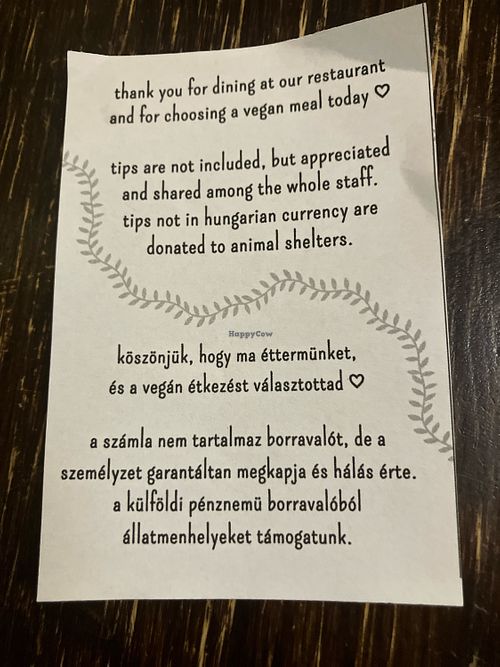 thank you for dining at our restaurant
and for choosing a vegan meal today ♡
tips are not included, but appreciated
and shared among the whole staff.
tips not in hungarian currency are
donated to animal shelters.
HappyCow
köszönjük, hogy ma éttermünket,
és a vegán étkezést választottad ♡
a számla nem tartalmaz borravalót, de a
személyzet garantáltan megkapja és hálás érte.
a külföldi pénznemű borravalóból
állatmenhelyeket támogatunk.